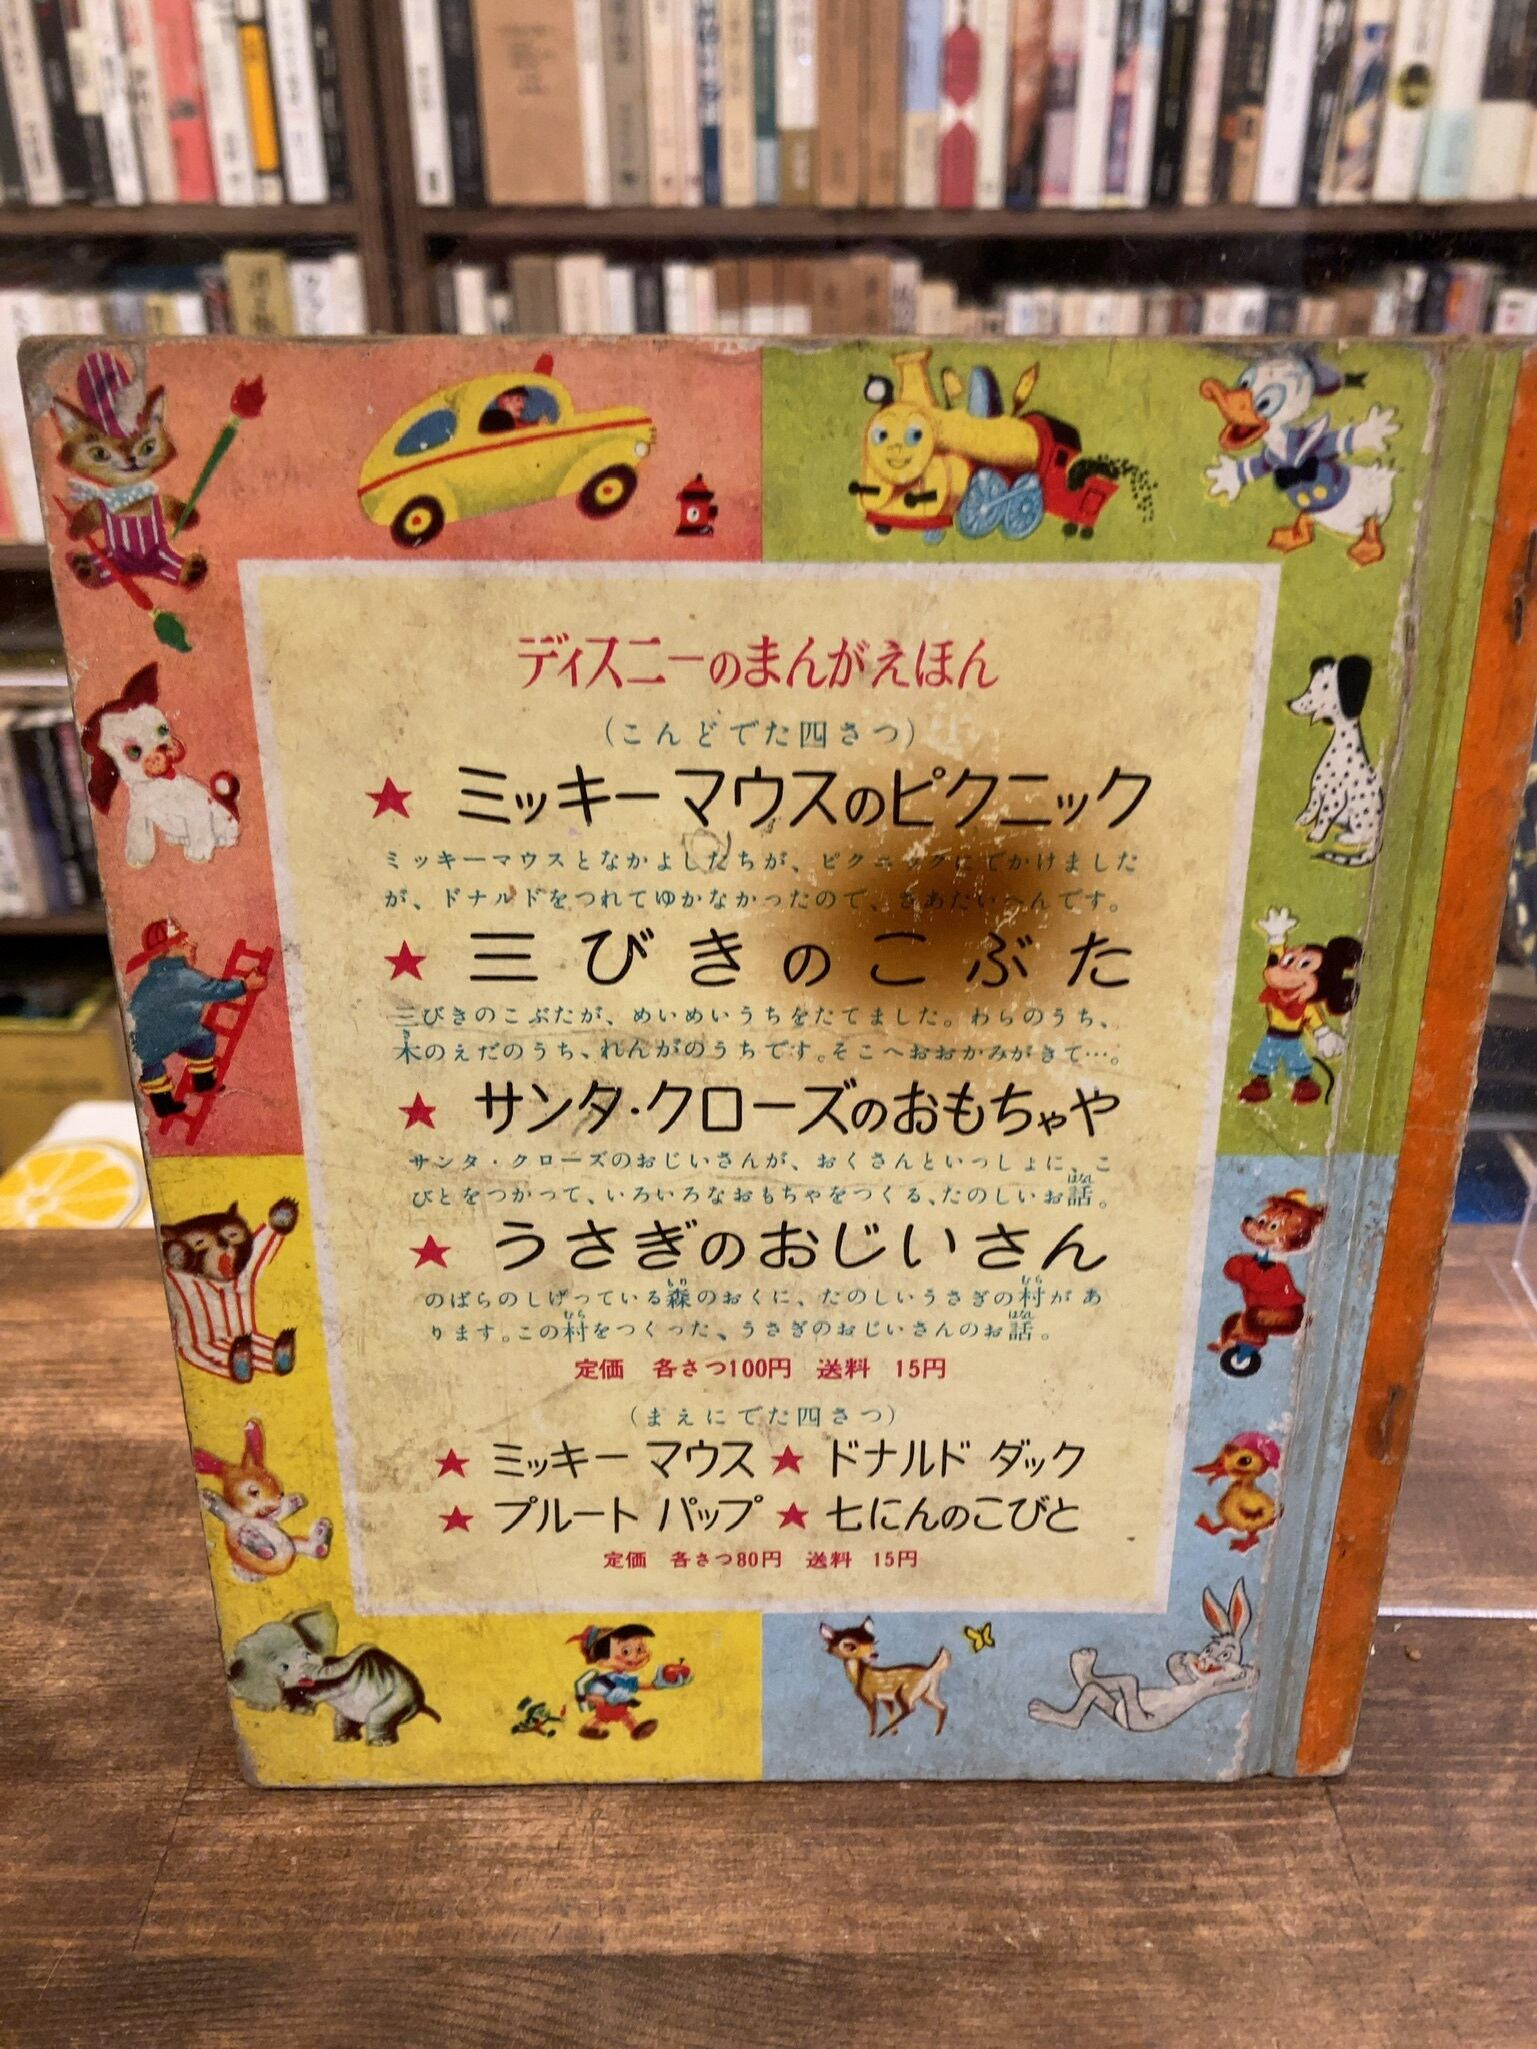 ディズニーのまんがえほん
(こんどでた四さつ)
★ ミッキーマウスのピクニック
ミッキーマウスとなかよしたちが、ピクニックにでかけました
が、ドナルドをつれてゆかなかったので、さあたいへんです。
★ 三びきのこぶた
三びきのこぶたが、めいめいうちをたてました。わらのうち、
木のえだのうち、れんがのうちです。そこへおおかみがきて…。
★ サンタ・クローズのおもちゃや
サンタ・クローズのおじいさんが、おくさんといっしょに、こ
びとをつかって、いろいろなおもちゃをつくる、たのしいお話。
★ うさぎのおじいさん
のばらのしげっている森のおくに、たのしいうさぎの村があ
ります。この村をつくった、うさぎのおじいさんのお話。
定価 各さつ100円 送料 15円
(まえにでた四さつ)
★ ミッキー マウス ★ ドナルド ダック
★ プルート パップ ★ 七にんのこびと
定価 各さつ80円 送料 15円